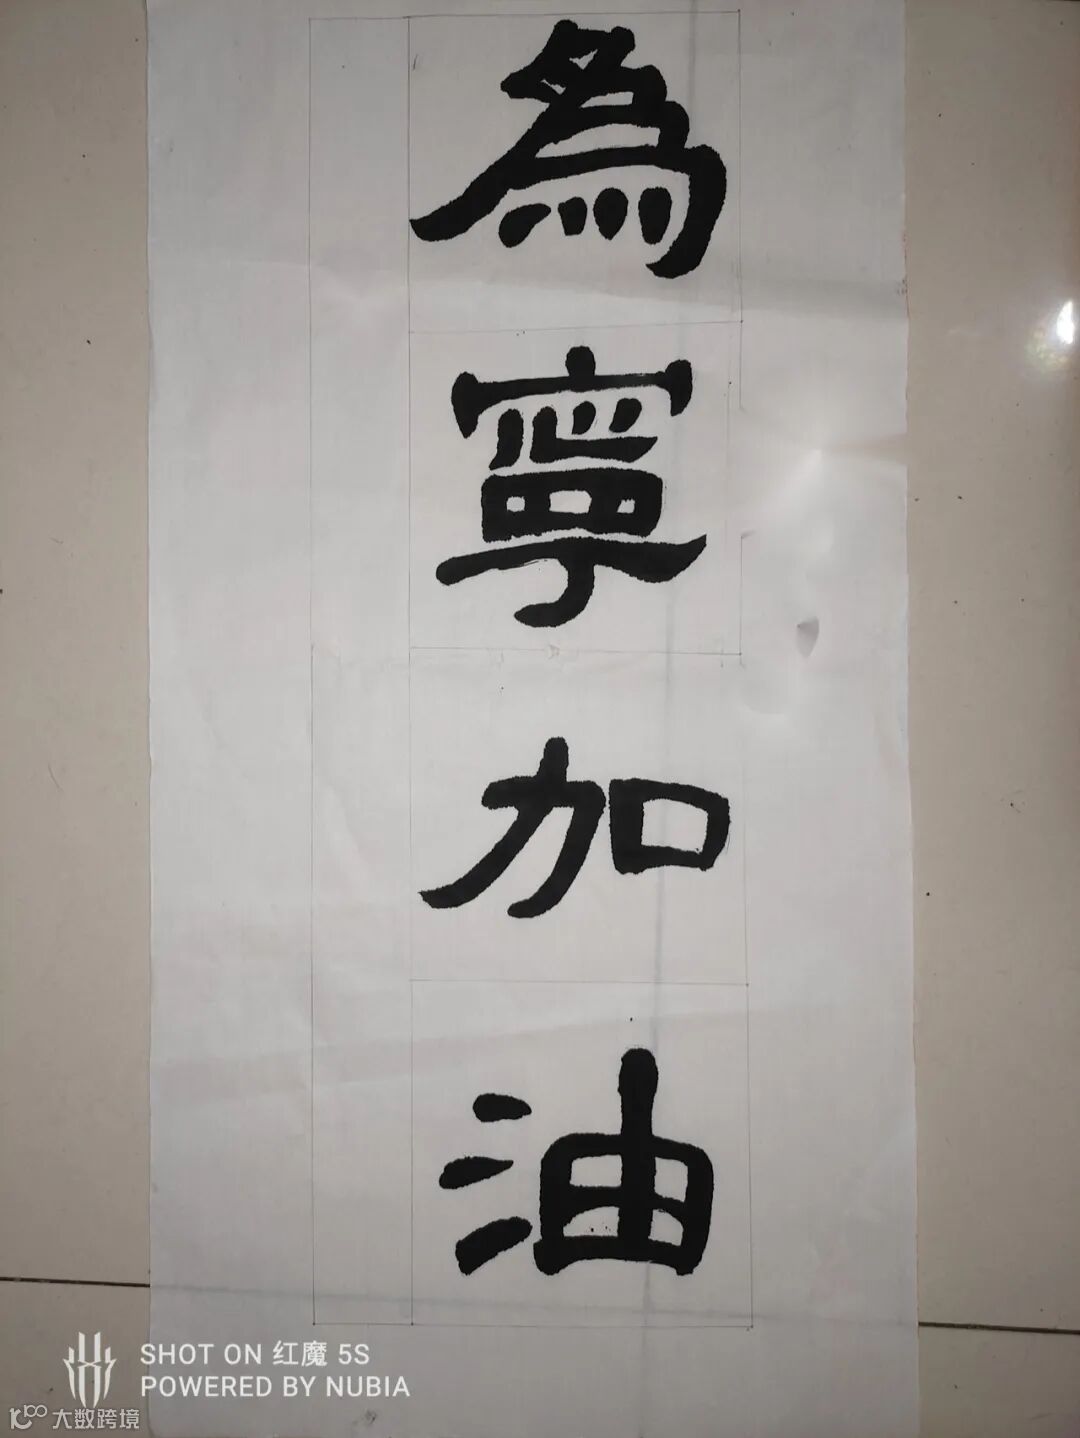 為
寧
加
油
SHOT ON 红魔 5S
POWERED BY NUBIA
大数跨境